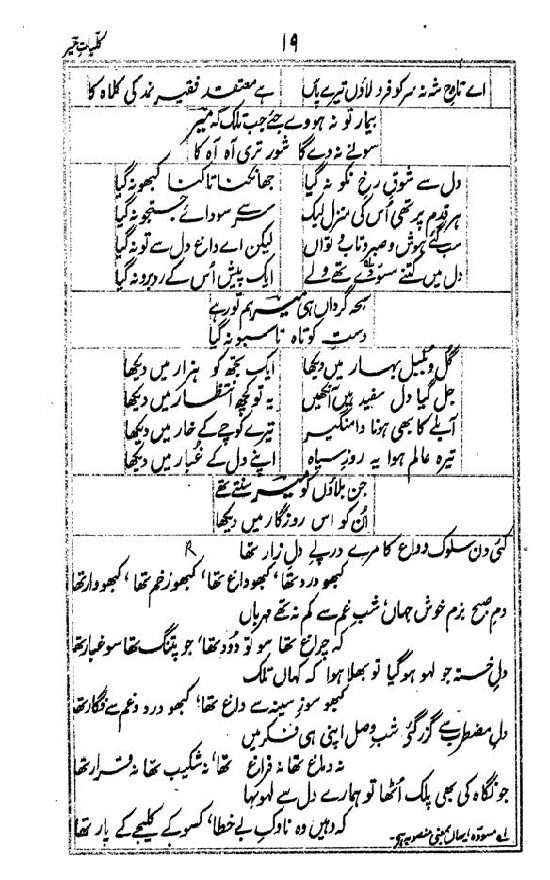 کلیاتِ میر
۱۹
اے تاجِ شہ نہ سر کو فرو لاؤں تیرے پاس ہے معتقد فقیر نمد کی کلاہ کا
بیمار تو نہ ہووے جئے جب تلک کہ میر
سونے نہ دے گا شور تری آہ آہ کا
دل سے شوقِ رخِ نکو نہ گیا جھانکنا تاکنا کبھو نہ گیا
ہر قدم پر تھی اُس کی منزل لیک سر سے سودائے جستجو نہ گیا
سب گئے ہوش و صبر و تاب و تواں لیکن اے داغ دل سے تو نہ گیا
دل میں کتنے مسودے تھے ولے ایک پیش اُس کے روبرو نہ گیا
سبحہ گرداں ہی میر ہم تو رہے
دستِ کوتاہ تا سبو نہ گیا
گل و بلبل بہار میں دیکھا ایک تجھ کو ہزار میں دیکھا
جل گیا دل سفید ہیں آنکھیں یہ تو کچھ انتظار میں دیکھا
آبلے کا بھی ہونا دامنگیر تیرے کوچے کے خار میں دیکھا
تیرہ عالم ہوا یہ روزِ سیاہ اپنے دل کے غبار میں دیکھا
جن بلاؤں کو میر سنتے تھے
اُن کو اس روزگار میں دیکھا
کئی دن سلوک وداع کا مرے درپے دلِ زار تھا
کبھو درد تھا، کبھو داغ تھا، کبھو زخم تھا، کبھو وار تھا
دمِ صبح بزمِ خوش جہاں شبِ غم سے کم نہ تھے مہرباں
کہ چراغ تھا سو تو دُود تھا، جو پتنگ تھا سو غبار تھا
دلِ خستہ جو لہو ہوگیا تو بھلا ہوا کہ کہاں تلک
کبھو سوزِ سینہ سے داغ تھا، کبھو درد و غم سے فگار تھا
دلِ مضطرب سے گزر گئی شبِ وصل اپنی ہی فکر میں
نہ دماغ تھا نہ فراغ تھا، نہ شکیب تھا نہ قرار تھا
جو نگاہ کی بھی پلک اُٹھا تو ہمارے دل سے لہو بہا
کہ وہیں وہ ناوکِ بے خطا، کسو کے کلیجے کے پار تھا
مسودہ یہاں بمعنی منصوبہ ہے۔